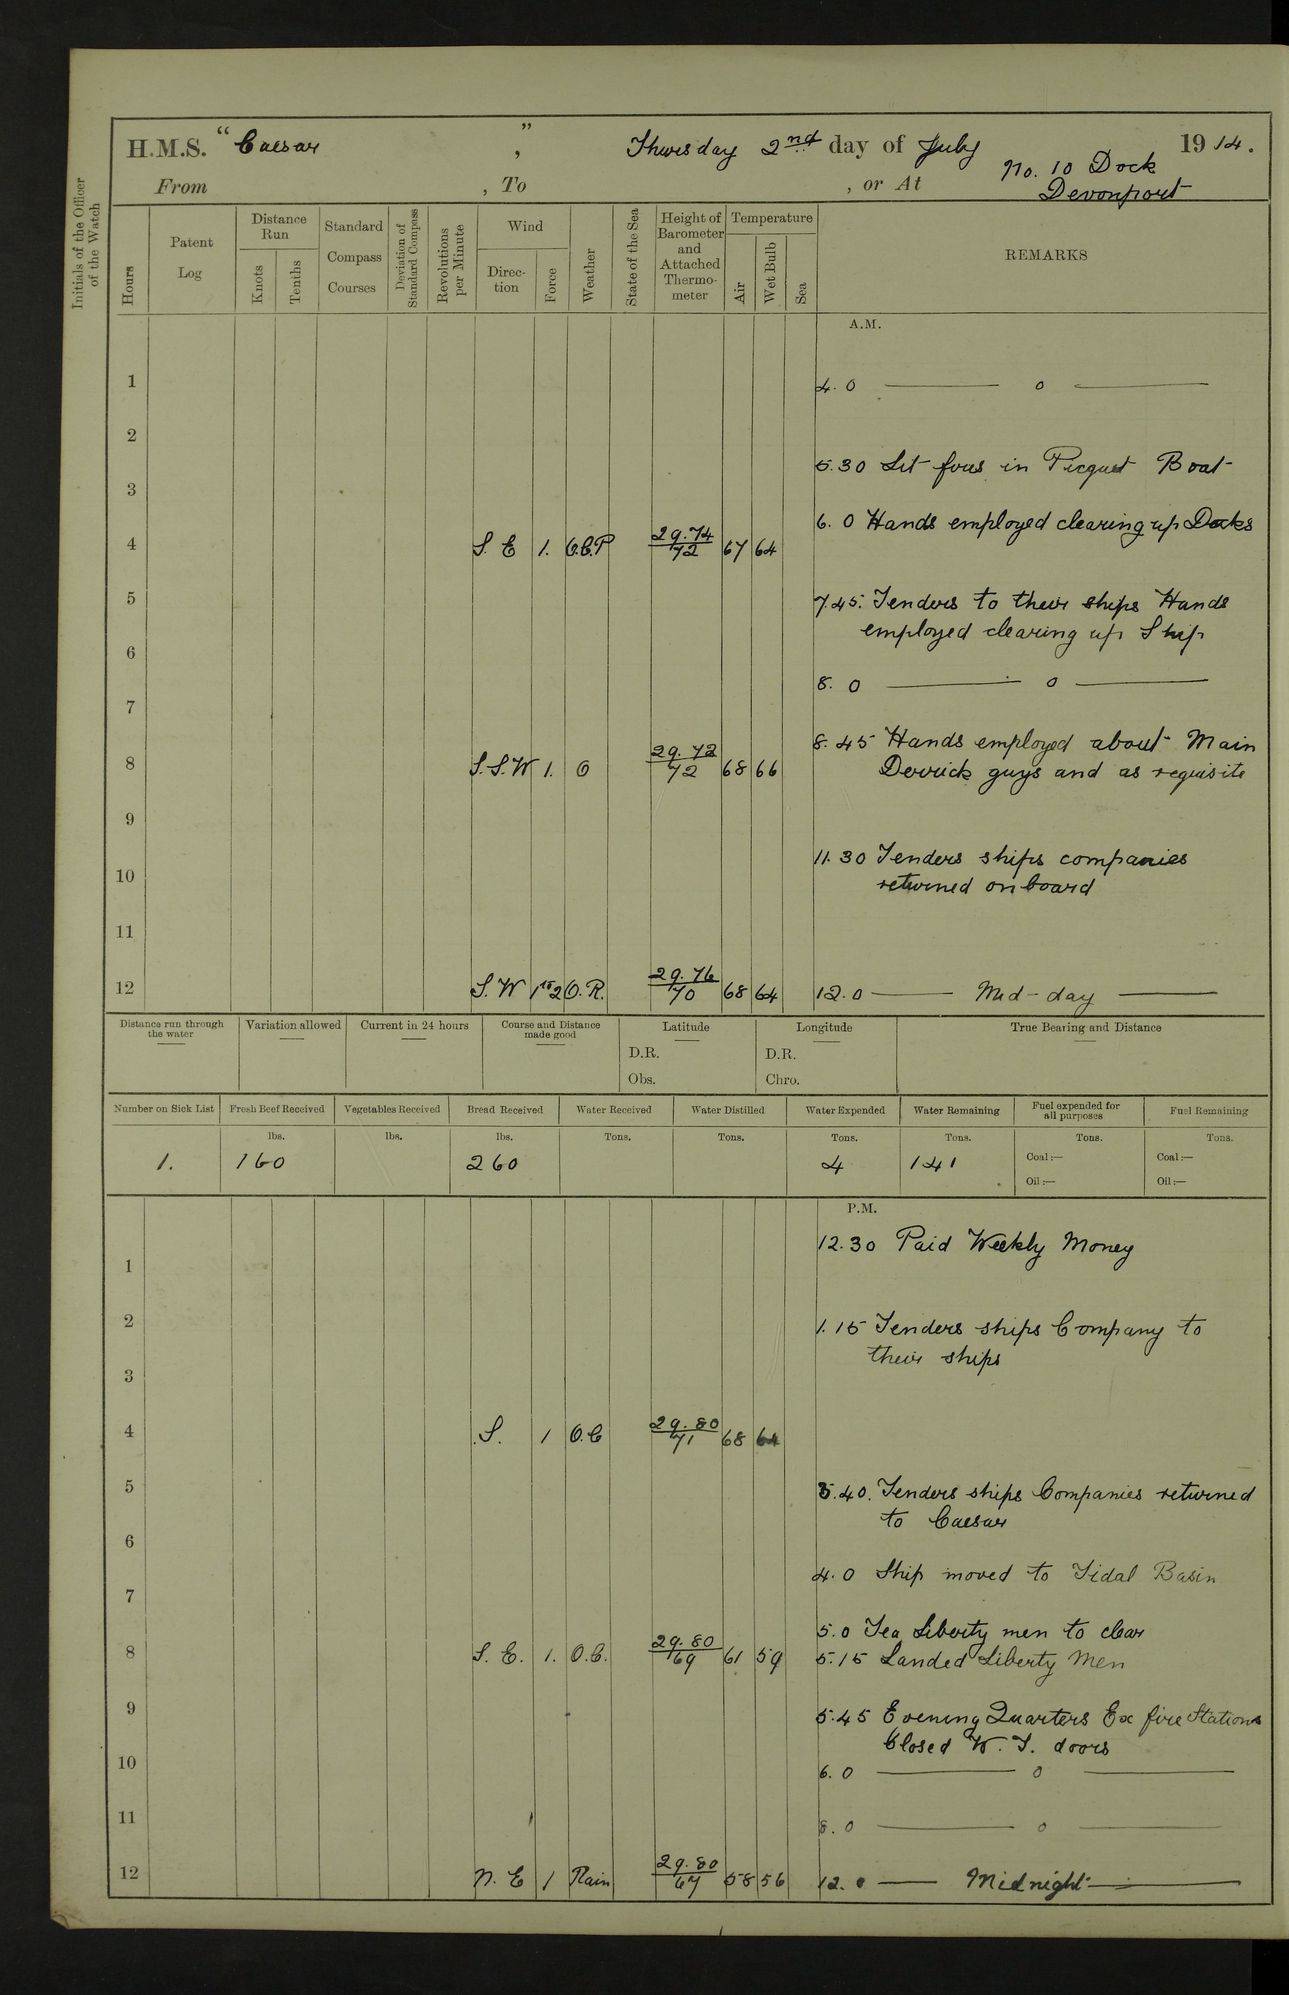 H.M.S. "Caesar", Thursday 2nd day of July 1914.
From , To , or At No. 10 Dock
Devonport
Initials of the Officer of the Watch
Hours
Patent Log
Distance Run
Knots
Tenths
Standard Compass Courses
Deviation of Standard Compass
Revolutions per Minute
Wind
Direc-tion
Force
Weather
State of the Sea
Height of Barometer and Attached Thermo-meter
Temperature
Air
Wet Bulb
Sea
REMARKS
A.M.
1
4.0 — o —
2
5.30 Lit fires in Picquet Boat
3
6.0 Hands employed clearing up Decks
4 S.E 1. O.C.P 29.74/72 67 64
5
7.45. Tenders to their ships Hands
employed clearing up Ship
6
8.0 — o —
7
8.45 Hands employed about Main
Derrick guys and as requisite
8 S.S.W 1. O 29.72/72 68 66
9
11.30 Tenders ships companies
returned onboard
10
11
12 S.W 1to2 O.R. 29.76/70 68 64 12.0 — Mid-day —
Distance run through the water
Variation allowed
Current in 24 hours
Course and Distance made good
Latitude
D.R.
Obs.
Longitude
D.R.
Chro.
True Bearing and Distance
Number on Sick List
Fresh Beef Received
Vegetables Received
Bread Received
Water Received
Water Distilled
Water Expended
Water Remaining
Fuel expended for all purposes
Fuel Remaining
lbs. lbs. lbs. Tons. Tons. Tons. Tons. Tons. Tons.
1. 160 260 4 141
Coal:— Coal:—
Oil:— Oil:—
P.M.
12.30 Paid Weekly Money
1
2
1.15 Tenders ships Company to
their ships
3
4 S. 1 O.C 29.80/71 68 64
5
3.40. Tenders ships Companies returned
to Caesar
6
4.0 Ship moved to Tidal Basin
7
5.0 Tea Liberty men to clean
8 S.E. 1. O.C. 29.80/69 61 59
5.15 Landed Liberty Men
9
5.45 Evening Quarters Ex fire Stations
Closed W.T. doors
10
6.0 — o —
11
8.0 — o —
12 N.E 1 Rain 29.80/67 58 56 12.0 — Midnight —